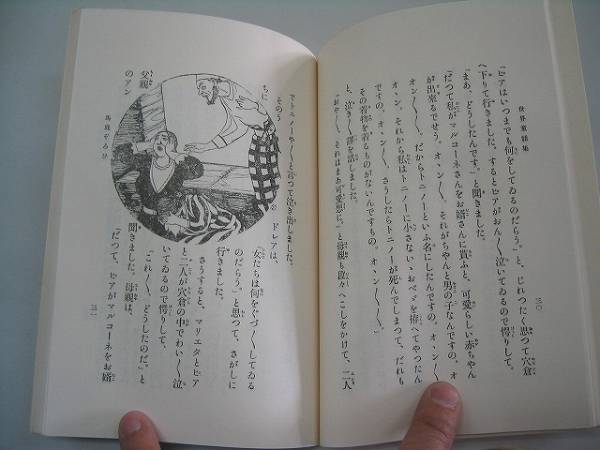 世界童話集
「ピアはいつまでも何をしてゐるのだらう。」と、じれつたく思つて穴倉
へ下りて行きました。するとピアがおん〳〵泣いてゐるので愕りして、
「まあ、どうしたんです。」と聞きました。
「だつて私がマルコーネさんをお婿さんに貰ふと、可愛らしい赤ちやん
が出來るでせう。オ、ン〳〵、それがちやんと男の子なんですもの。オ、
オ、ン〳〵、だからトニノーといふ名にしたんですの。オ、ン〳〵〳〵、
オ、ン、それから私はトニノーに小さない〻おべゞを拵へてやつたん
ですの。オ、ン〳〵、さうしたらトニノーが死んでしまつて、だれも
その着物を着るものがないんですもの。オ、ン〳〵〳〵。」
と、泣き〳〵譯を話しました。
「おや〳〵、それはまあ可愛想に。」と母親も段々へこしをかけて、二人
三〇
でトニノーや〳〵と言つて泣き出しました。
そのう
ちに
父親
のアン
ドレアは、
「女たちは何をぐづ〳〵してゐる
のだらう。」と思つて、さがしに
行きました。
さうすると、マリエタとピア
と二人が穴倉の中でわい〳〵泣
いてゐるので愕りして、
「これ〳〵、どうしたのだ。」と
聞きました。母親は、
「だつて、ピアがマルコーネをお婿
馬鹿ぞろひ
三一